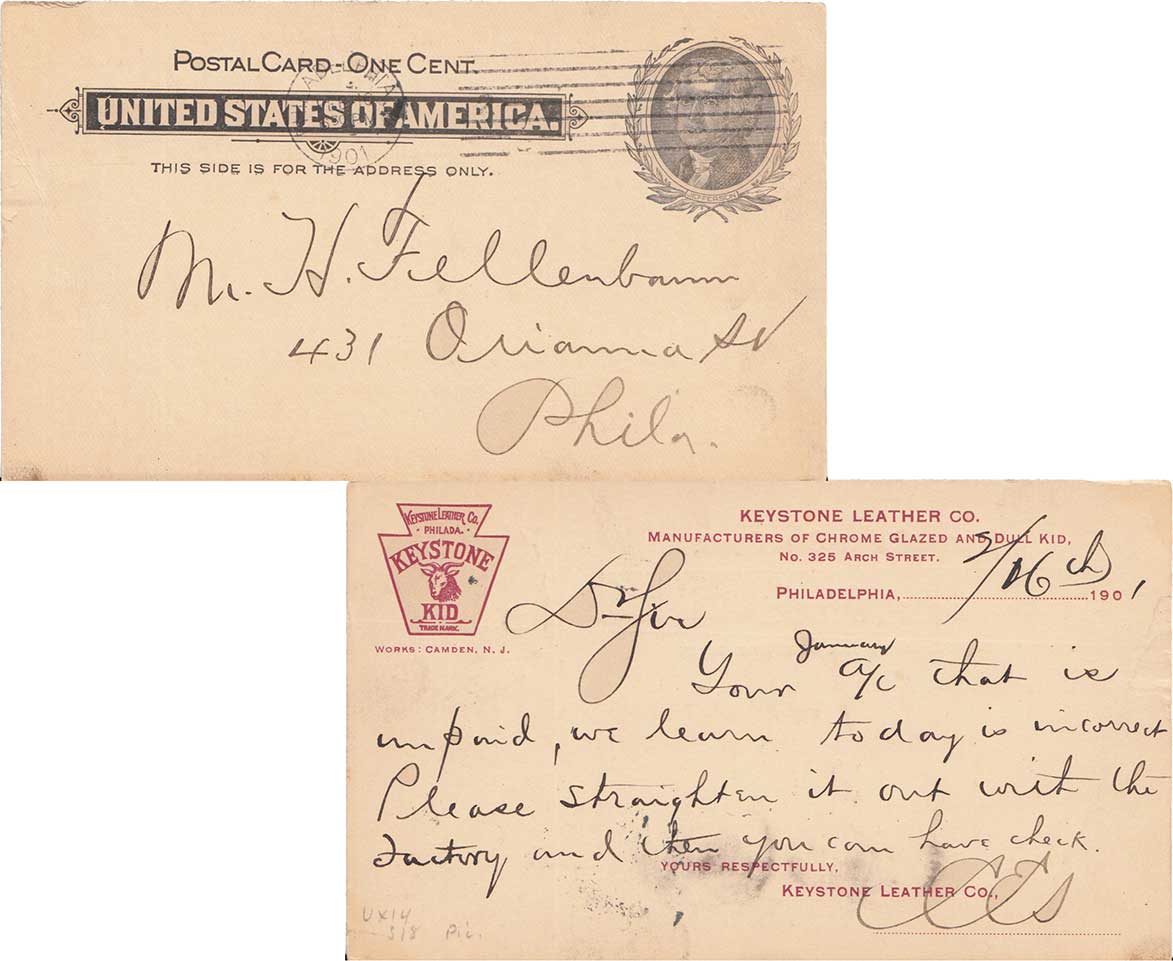 POSTAL CARD - ONE CENT.
UNITED STATES OF AMERICA.
THIS SIDE IS FOR THE ADDRESS ONLY.
1901
JEFFERSON
Mr. H. Fellenbaum
431 Orianna St
Phila.
KEYSTONE LEATHER CO.
PHILADA.
KEYSTONE
KID
TRADE MARK.
WORKS: CAMDEN, N. J.
KEYSTONE LEATHER CO.
MANUFACTURERS OF CHROME GLAZED AND DULL KID,
No. 325 ARCH STREET.
PHILADELPHIA, 2/16th 1901
Dr Sir
January
Your a/c that is
unpaid, we learn today is incorrect
Please straighten it out with the
factory and then you can have check.
YOURS RESPECTFULLY,
KEYSTONE LEATHER CO.,
UX14
S18 Pic.